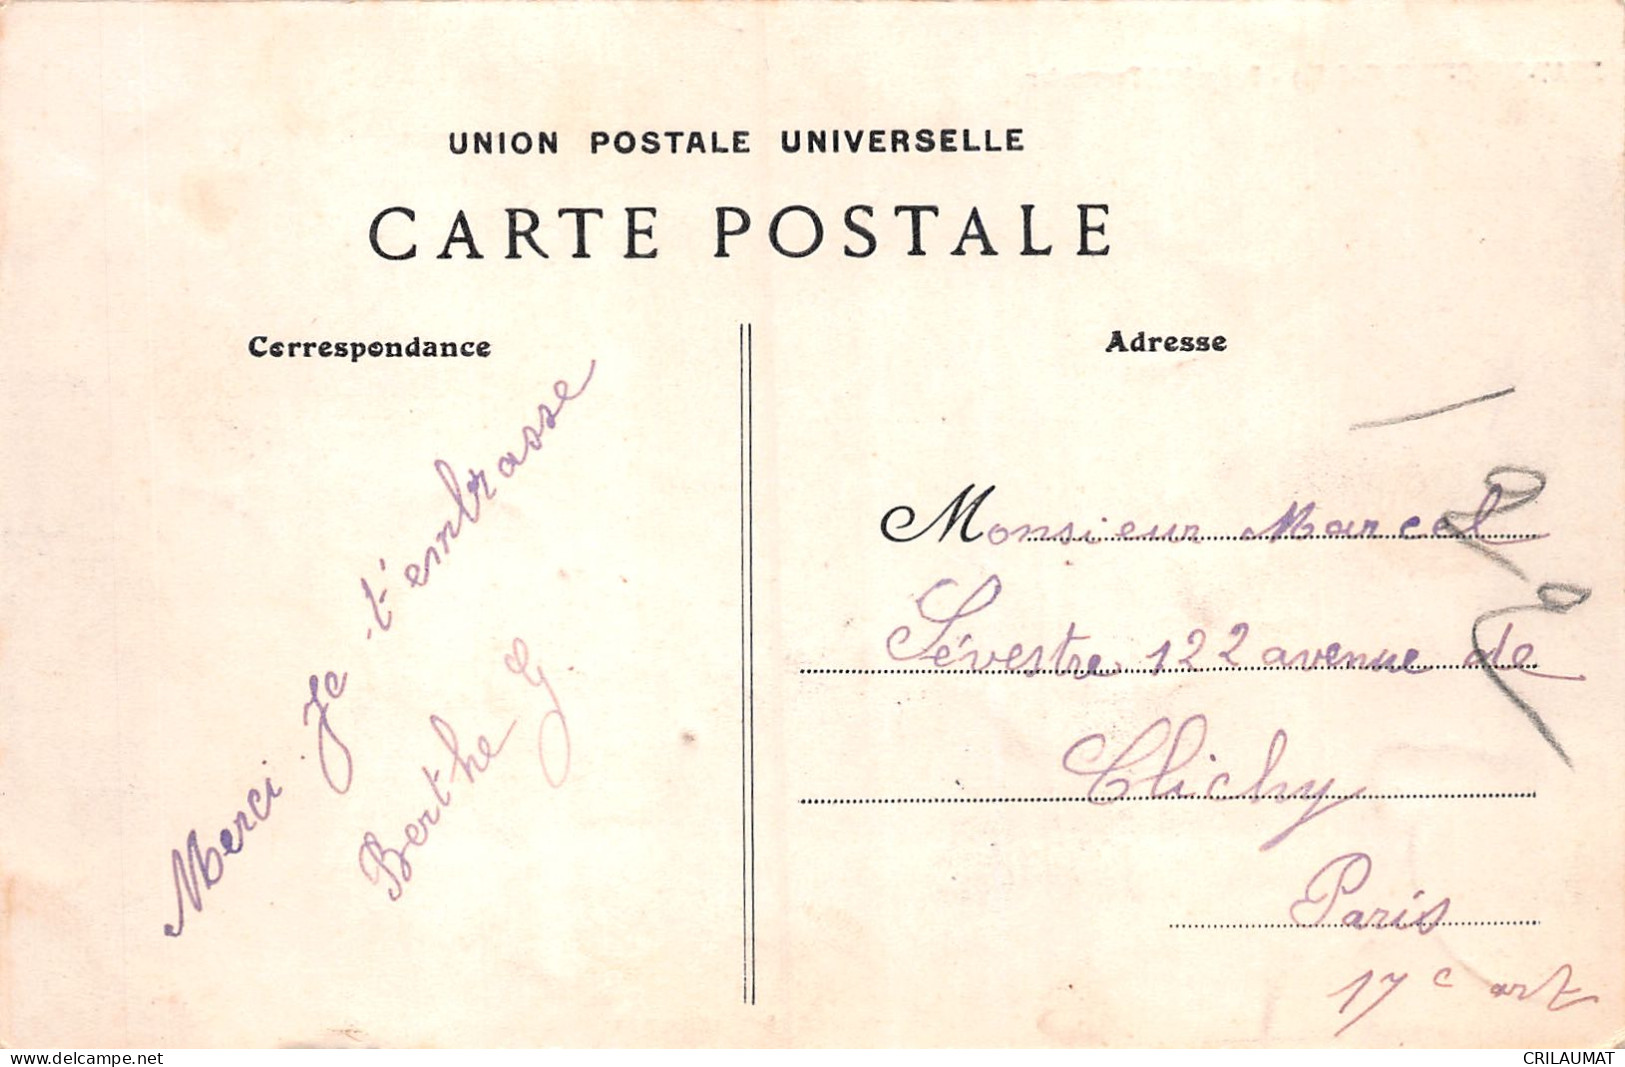 UNION POSTALE UNIVERSELLE
CARTE POSTALE
Correspondance
Merci Je t'embrasse
Berthe G
Adresse
Monsieur Marcel
Sévestre 122 avenue de
Clichy
Paris
17e art
www.delcampe.net
CRILAUMAT